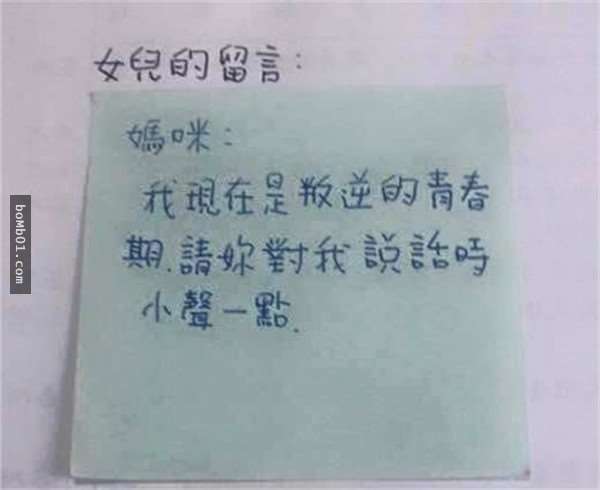 女兒的留言：
媽咪：
我現在是叛逆的青春
期、請妳對我說話時
小聲一點.
boMb01.com